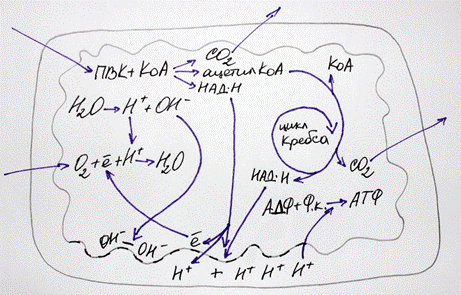 ПВК + КоА → CO₂
ацетил КоА
НАД·Н
КоА
H₂O → H⁺ + OH⁻
цикл Кребса
O₂ + ē + H⁺ → H₂O
CO₂
НАД·Н
АДФ + Ф.к. → АТФ
OH⁻ OH⁻ ē
H⁺ + H⁺ H⁺ H⁺